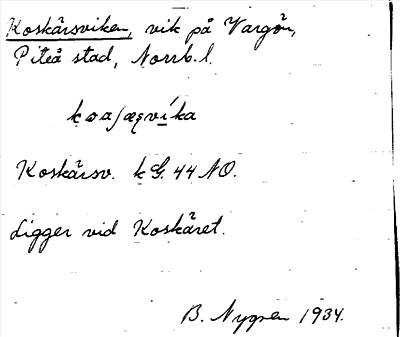 Koskärsviken, vik på Vargön,
Piteå stad, Norrb. l.
Koskärsv. k G. 44 NO.
Ligger vid Koskäret.
B. Nygren 1934.